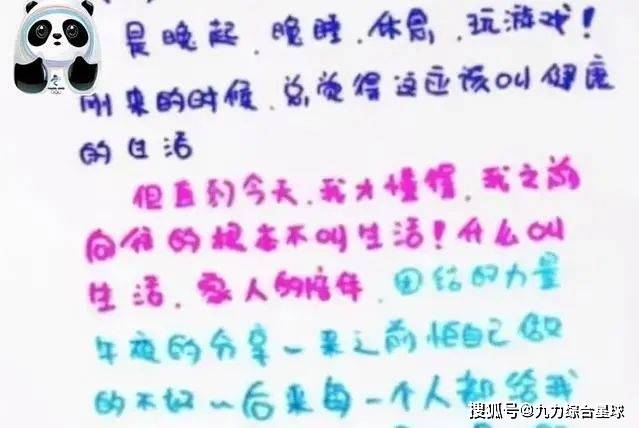 是晚起、晚睡、休息、玩游戏!
刚来的时候、总觉得这应该叫健康
的生活
但直到今天、我才懂得、我之前
向往的根本不叫生活!什么叫
生活、家人的陪伴、团结的力量
午夜的分享一来之前怕自己做
的不好一后来每一个人都给我
搜狐号@九力综合星球